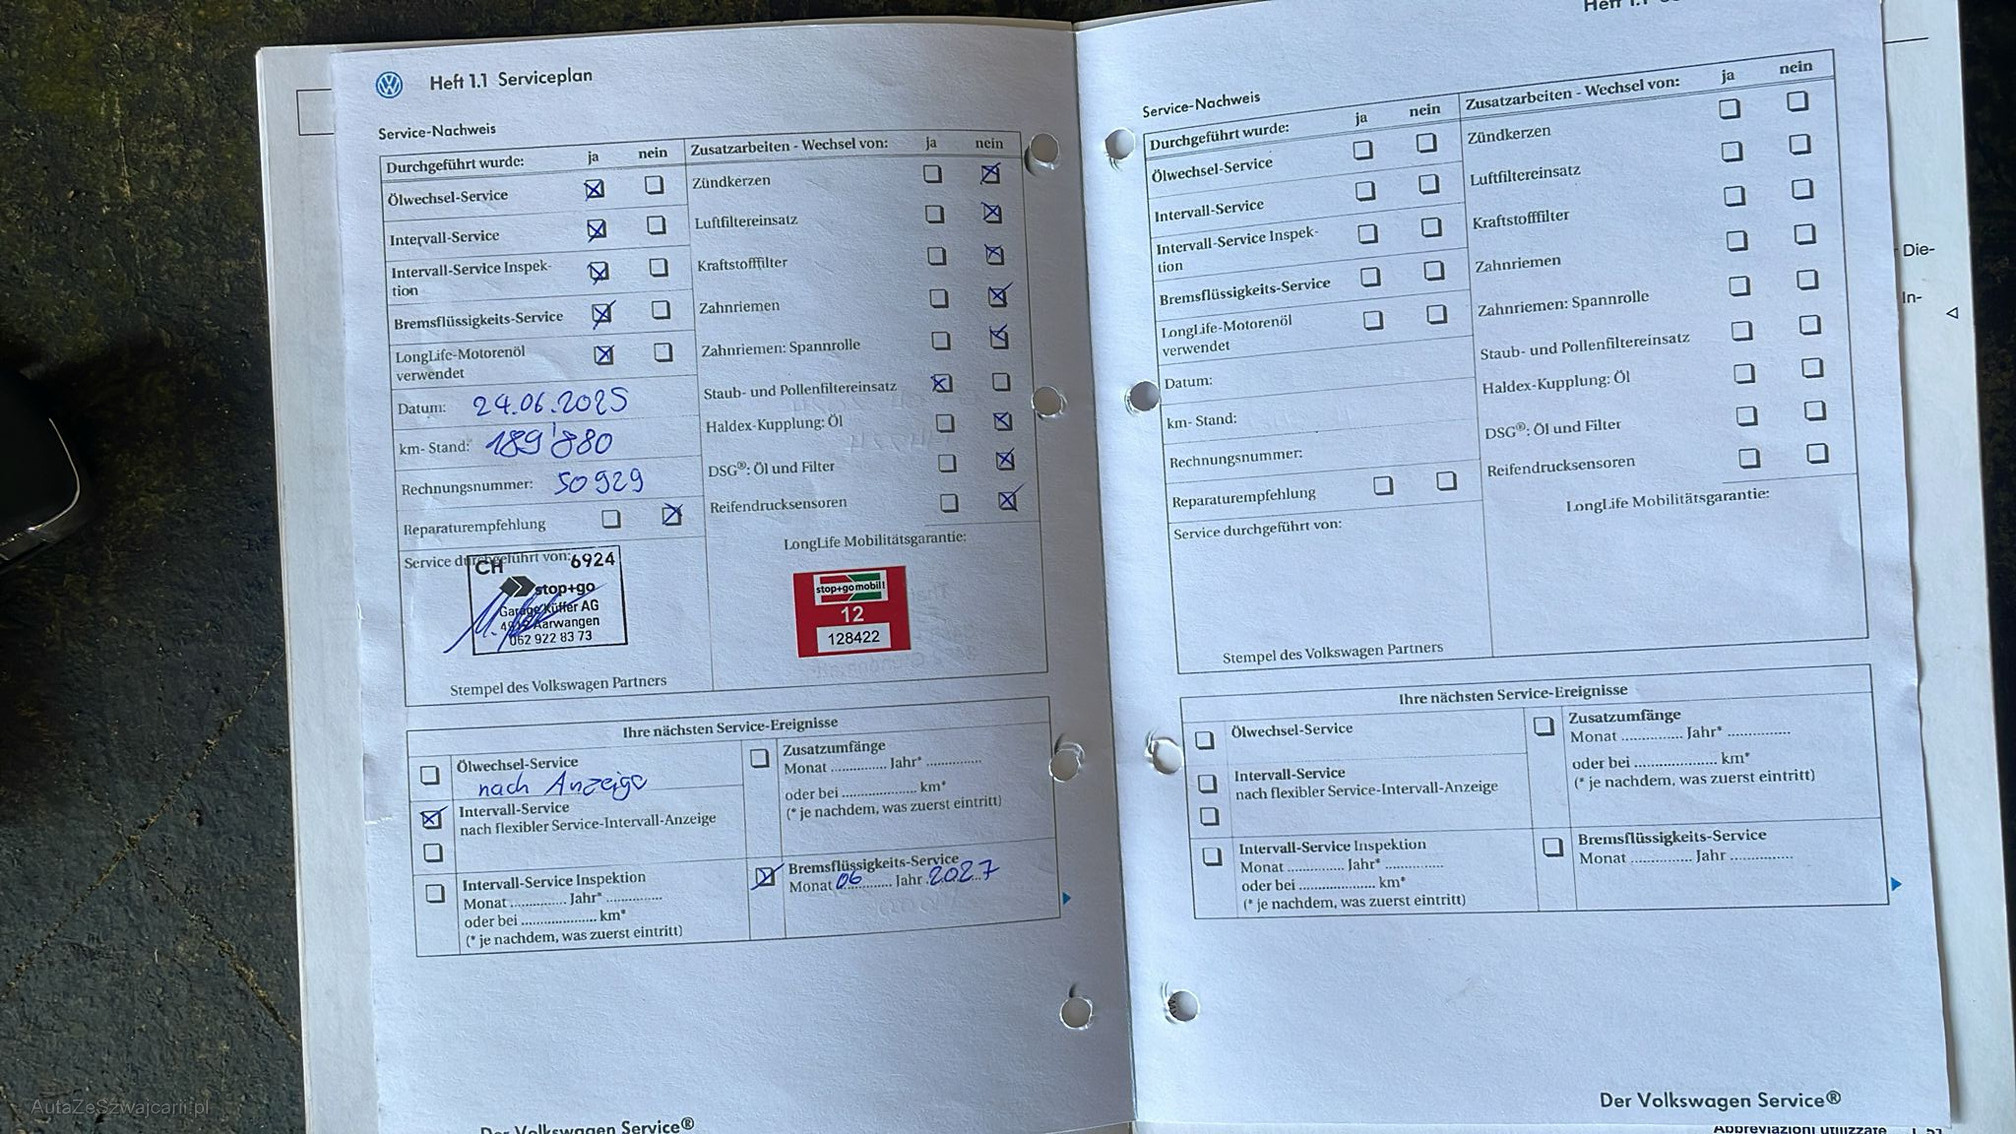 Heft 1.1 Serviceplan
Service-Nachweis
Durchgeführt wurde: ja nein
Ölwechsel-Service
Intervall-Service
Intervall-Service Inspek-
tion
Bremsflüssigkeits-Service
LongLife-Motorenöl
verwendet
Datum: 24.06.2025
km- Stand: 189'880
Rechnungsnummer: 50929
Reparaturempfehlung
Service durchgeführt von:
CH 6924
stop+go
Garage Küffer AG
Aarwangen
062 922 83 73
Stempel des Volkswagen Partners
Zusatzarbeiten - Wechsel von: ja nein
Zündkerzen
Luftfiltereinsatz
Kraftstofffilter
Zahnriemen
Zahnriemen: Spannrolle
Staub- und Pollenfiltereinsatz
Haldex-Kupplung: Öl
DSG®: Öl und Filter
Reifendrucksensoren
LongLife Mobilitätsgarantie:
stop+go mobil!
12
128422
Ihre nächsten Service-Ereignisse
Ölwechsel-Service
nach Anzeige
Intervall-Service
nach flexibler Service-Intervall-Anzeige
Intervall-Service Inspektion
Monat .............. Jahr* ..............
oder bei ................... km*
(* je nachdem, was zuerst eintritt)
Zusatzumfänge
Monat .............. Jahr* ..............
oder bei ................... km*
(* je nachdem, was zuerst eintritt)
Bremsflüssigkeits-Service
Monat 06 Jahr 2027
Der Volkswagen Service®
Heft 1.1
Service-Nachweis
Durchgeführt wurde: ja nein
Ölwechsel-Service
Intervall-Service
Intervall-Service Inspek-
tion
Bremsflüssigkeits-Service
LongLife-Motorenöl
verwendet
Datum:
km- Stand:
Rechnungsnummer:
Reparaturempfehlung
Service durchgeführt von:
Stempel des Volkswagen Partners
Zusatzarbeiten - Wechsel von: ja nein
Zündkerzen
Luftfiltereinsatz
Kraftstofffilter
Zahnriemen
Zahnriemen: Spannrolle
Staub- und Pollenfiltereinsatz
Haldex-Kupplung: Öl
DSG®: Öl und Filter
Reifendrucksensoren
LongLife Mobilitätsgarantie:
Ihre nächsten Service-Ereignisse
Ölwechsel-Service
Intervall-Service
nach flexibler Service-Intervall-Anzeige
Intervall-Service Inspektion
Monat .............. Jahr* ..............
oder bei ................... km*
(* je nachdem, was zuerst eintritt)
Zusatzumfänge
Monat .............. Jahr* ..............
oder bei ................... km*
(* je nachdem, was zuerst eintritt)
Bremsflüssigkeits-Service
Monat .............. Jahr ..............
Der Volkswagen Service®
Die-
In-
Abbreviazioni utilizzate
AutaZeSzwajcarii.pl